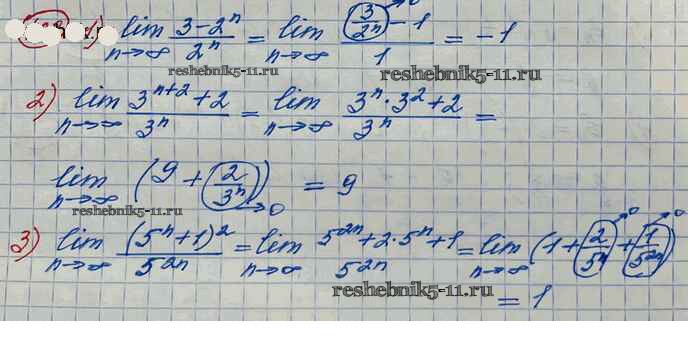 1) lim n→∞ (3-2ⁿ)/2ⁿ = lim n→∞ (3/2ⁿ - 1)/1 = -1
reshebnik5-11.ru reshebnik5-11.ru
2) lim n→∞ (3ⁿ⁺² + 2)/3ⁿ = lim n→∞ (3ⁿ · 3² + 2)/3ⁿ =
reshebnik5-11.ru
lim n→∞ (9 + 2/3ⁿ) = 9
→0
reshebnik5-11.ru
3) lim n→∞ (5ⁿ+1)²/5²ⁿ = lim n→∞ (5²ⁿ + 2·5ⁿ + 1)/5²ⁿ = lim n→∞ (1 + 2/5ⁿ + 1/5²ⁿ)
→0 →0
reshebnik5-11.ru
= 1